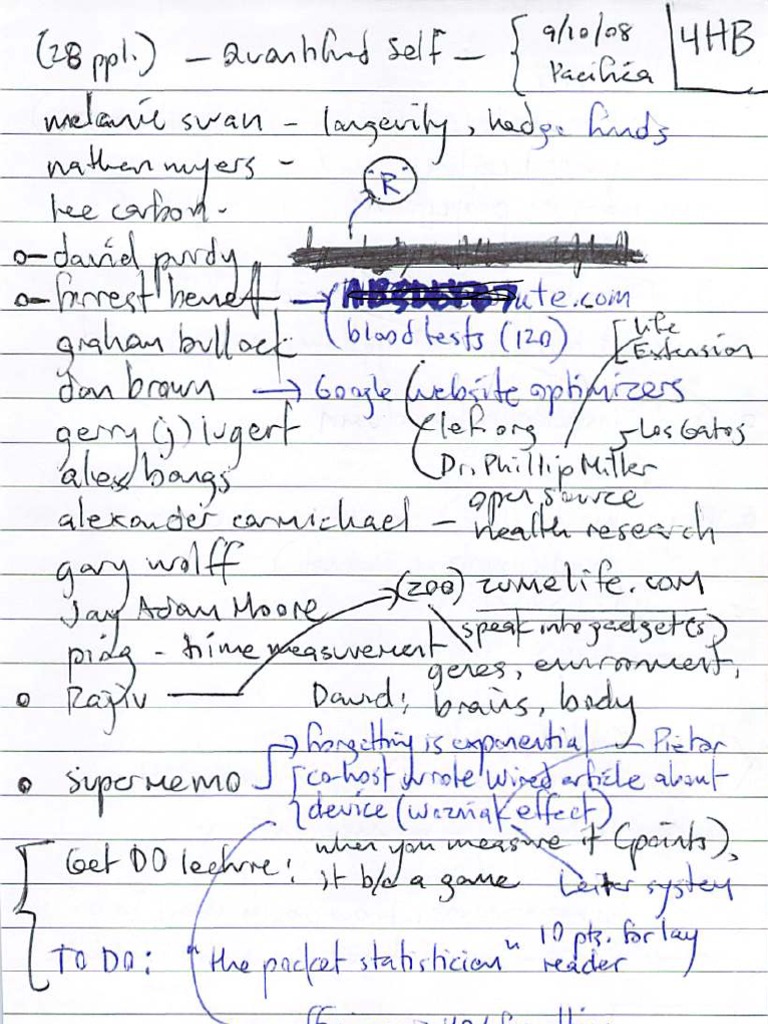 (28 ppl.) — Quantified Self — { 9/10/08 4HB
Pacifica
melanie swan – longevity, hedge funds
nathan myers –
"R"
lee carbon –
david purdy
forrest benet → ute.com
graham bullock (blood tests (120) [Life
Extension
dan brown → Google (website optimizers
gerry (j) lef.org – Los Gatos
alex bangs Dr. Phillip Miller
alexander carmichael – open source
health research
gary wolff
Jay Adam Moore (200) zumelife.com
speak into gadget(s)
ping – time measurement genes, environment,
Rajiv David: brains, body
→ forgetting is exponential – Pieter
supermemo { co-host wrote wired article about
device (wozniak effect)
Get DO lecture: when you measure it (points),
it b/c a game Leitner system
TO DO: "the pocket statistician" 10 pts. for lay
reader